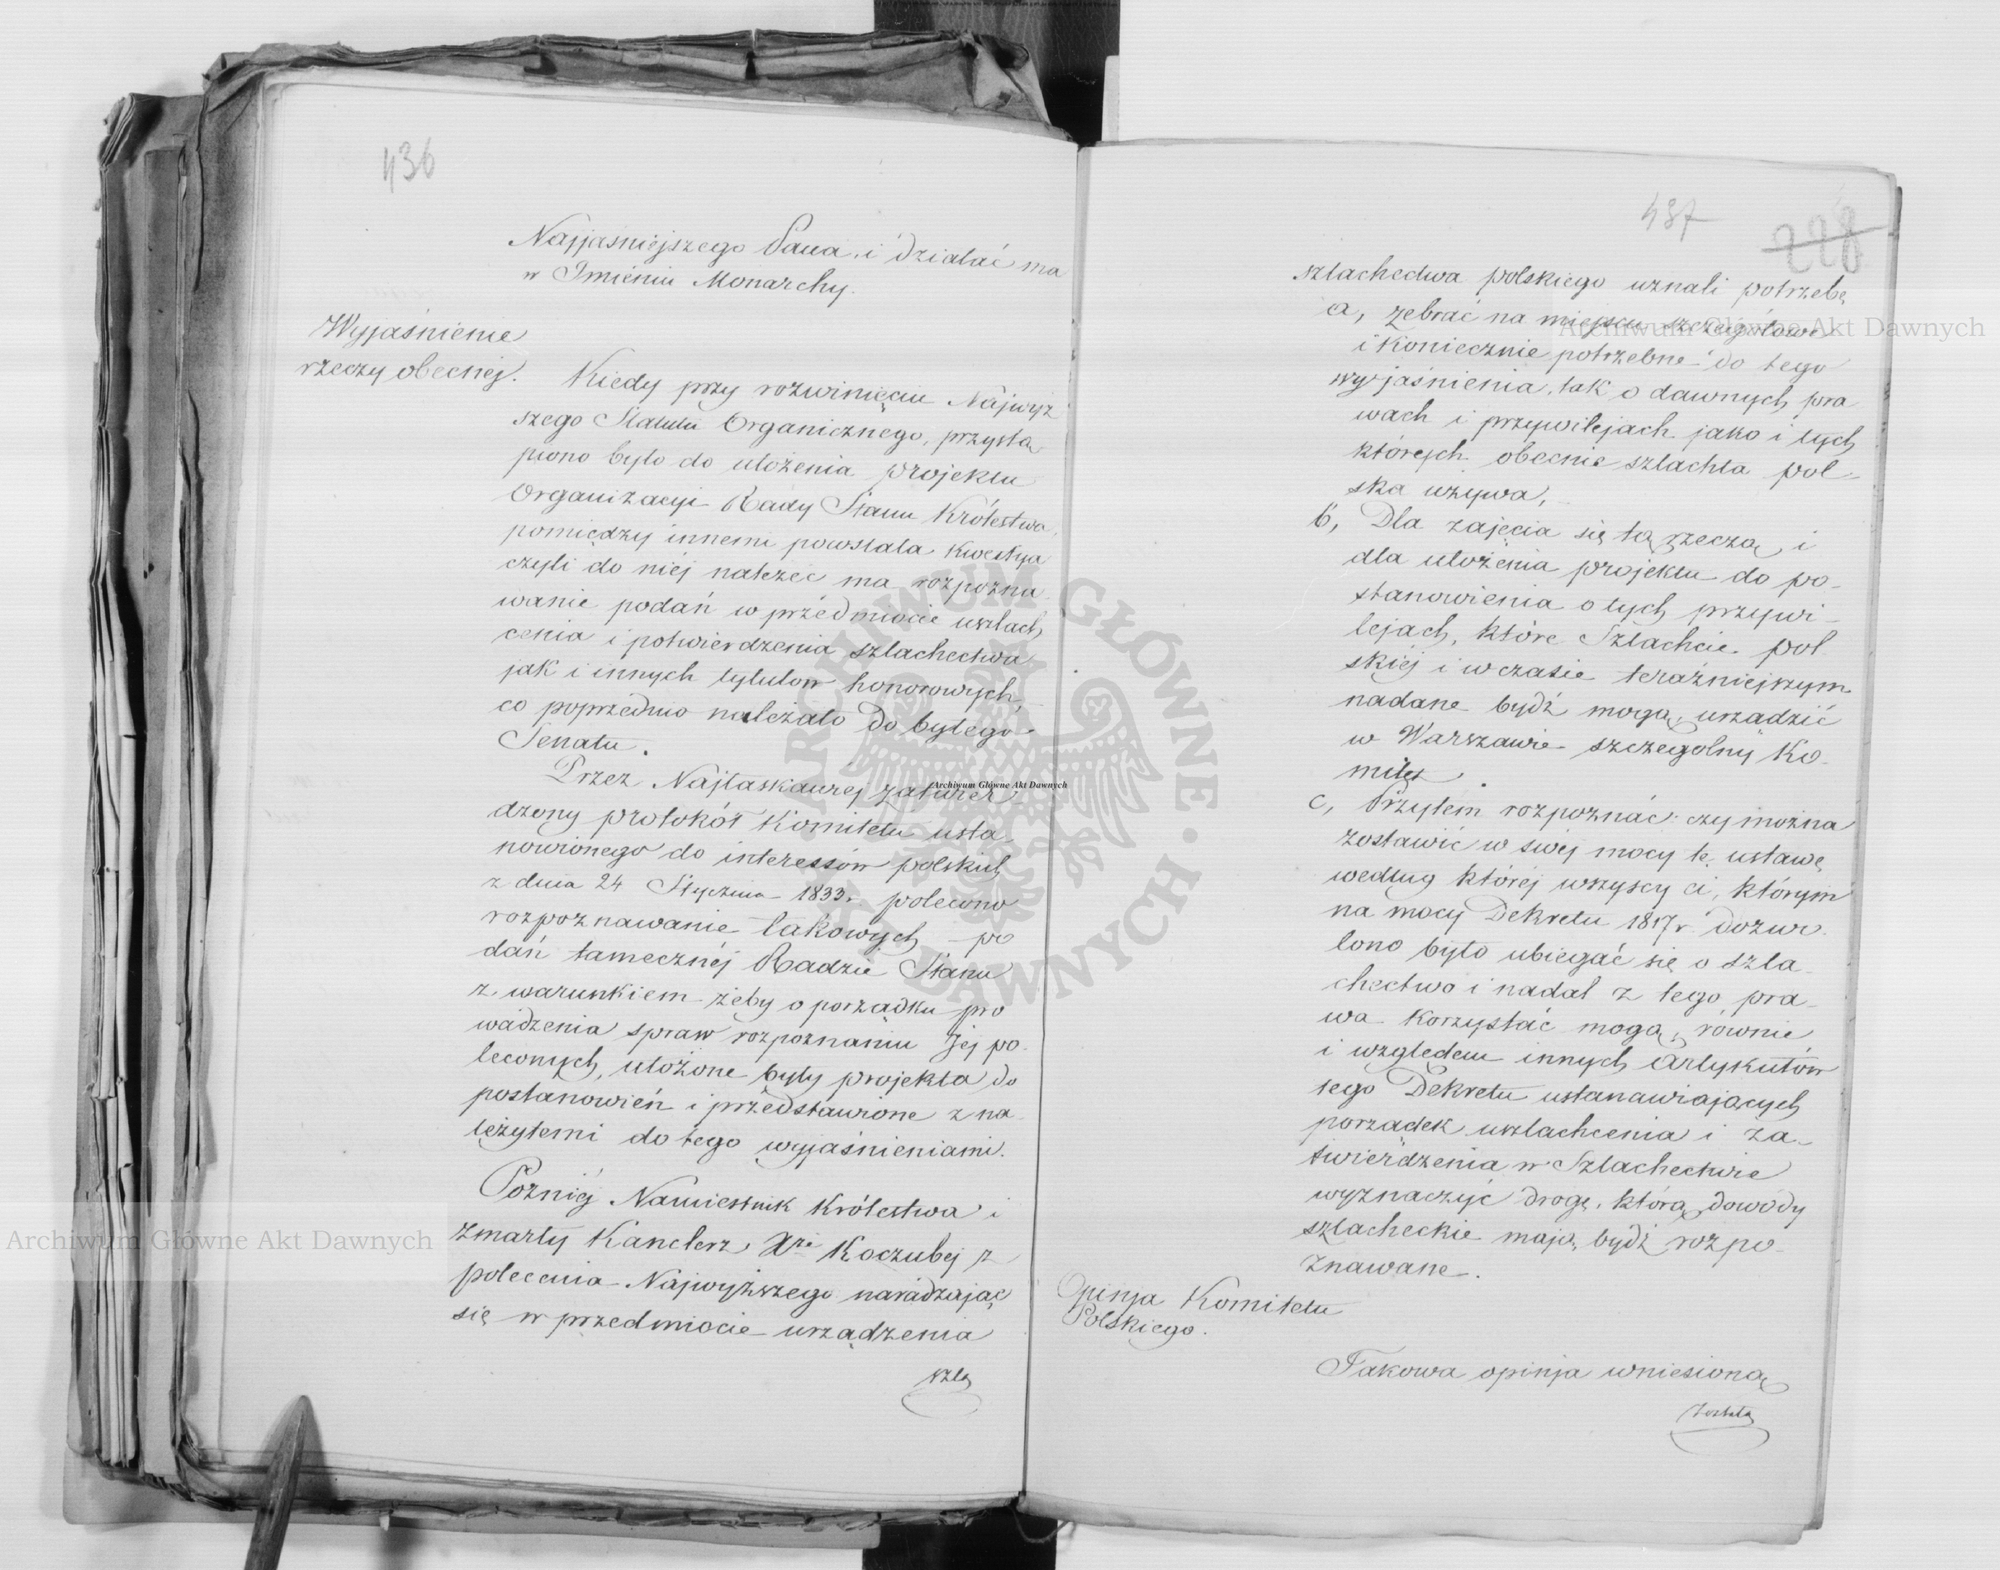 436
Najjaśniejszego Pana, i działać ma
w Imieniu Monarchy.
Wyjaśnienie
rzeczy obecnej.
Kiedy przy rozwinięciu Najwyż
szego Statutu Organicznego, przystą
piono było do ułożenia projektu
Organizacyi Rady Stanu Królestwa,
pomiędzy innemi powstała kwestya
czyli do niéj należeć ma rozpozna
wanie podań w przédmiocie uszlach
cenia i potwierdzenia szlachectwa
jak i innych tytułow honorowych,
co poprzednio należało do byłego
Senatu.
Przez Najłaskawiej zatwier
dzony protokół Komitetu usta
nowionego do interessów polskich
z dnia 24 Stycznia 1833 r. polecono
rozpoznawanie takowych po
dań tamecznéj Radzie Stanu
z warunkiem żeby o porządku pro
wadzenia spraw rozpoznaniu Jéj po
leconych, ułożone były projekta do
postanowień i przedstawione z na
leżytemi do tego wyjaśnieniami.
Poźniéj Namiestnik Królestwa i
zmarły Kanclerz Xże Koczubej z
polecenia Najwyższego naradzając
się w przedmiocie urządzenia
szla
437
228
szlachectwa polskiego uznali potrzebę
a, zebrać na miejscu szczegółowe
i koniecznie potrzebne do tego
wyjaśnienia, tak o dawnych pra
wach i przywilejach jako i tych
których obecnie szlachta pol
ska używa,
b, Dla zajęcia się tą rzeczą, i
dla ułożenia projektu do po-
stanowienia o tych przywi-
lejach, które Szlachcie pol
skiéj i w czasie teraźniejszym
nadane bydź mogą, urządzić
w Warszawie szczegolny Ko-
mitet.
c, Przytem rozpoznać czy można
zostawić w swéj mocy tę ustawę,
według któréj wszyscy ci, którym
na mocy Dekretu 1817 r. dozwo
lono było ubiegać się o szla-
chectwo i nadal z tego pra-
wa korzystać mogą, równie
i względem innych artykułów
tego Dekretu ustanawiających
porządek uszlachcenia i za-
twierdzenia w Szlachectwie
wyznaczyć drogę, którą dowody
szlacheckie mają bydź rozpo-
znawane.
Opinja Komitetu
Polskiego.
Takowa opinja wniesiona
została
Archiwum Główne Akt Dawnych
Archiwum Główne Akt Dawnych
Archiwum Główne Akt Dawnych
ARCHIWUM GŁÓWNE AKT DAWNYCH